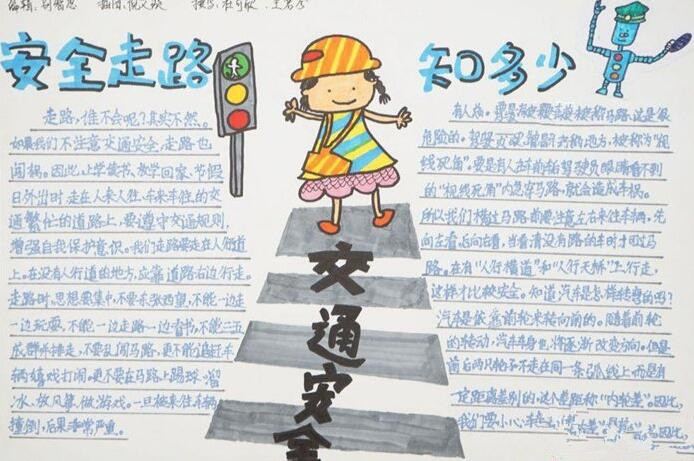 安全走路
知多少
走路,谁不会呢?其实不然。
如果我们不注意交通安全,走路也
闯祸。因此,上学读书、放学回家、节假
日外出时,走在人来人往、车来车往的交
通繁忙的道路上,要遵守交通规则,
增强自我保护意识。我们走路要走在人行道
上。在没有人行道的地方,应靠道路右边行走。
走路时,思想要集中,不要东张西望,不能一边走
一边玩耍,不能一边走路一边看书,不能三五
成群并排走,不要乱闯马路,更不能追赶车
辆嬉戏打闹。更不要在马路上踢球、溜
冰、放风筝、做游戏。一旦被来往车辆
撞倒,后果非常严重。
有人
危险的。
线死角"。要是有人在前轮驾驶员眼睛看不到
的"视线死角"内急穿马路,就会造成车祸。
所以我们横过马路前要注意左右来往车辆,先
向左看,后向右看,当看清没有路的车时才可过马
路。在有"人行横道"和"人行天桥"上行走,
这样才比较安全。知道汽车是怎样转弯的吗?
汽车是依靠前轮来转向前的。随着前轮
的转动,汽车车身也将逐渐改变方向。但是
前后两只轮子不走在同一条弧线上而是有
一定距离差别的,这个差距称"内轮差"。因此,
我们要小心车
交通安全